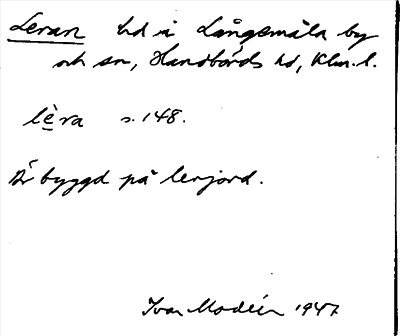 Leran hd i Långemåla by
och sn, Handbörds hd, Klm. l.
lèra s. 148.
Är byggd på lerjord.
Ivar Modéer 1947